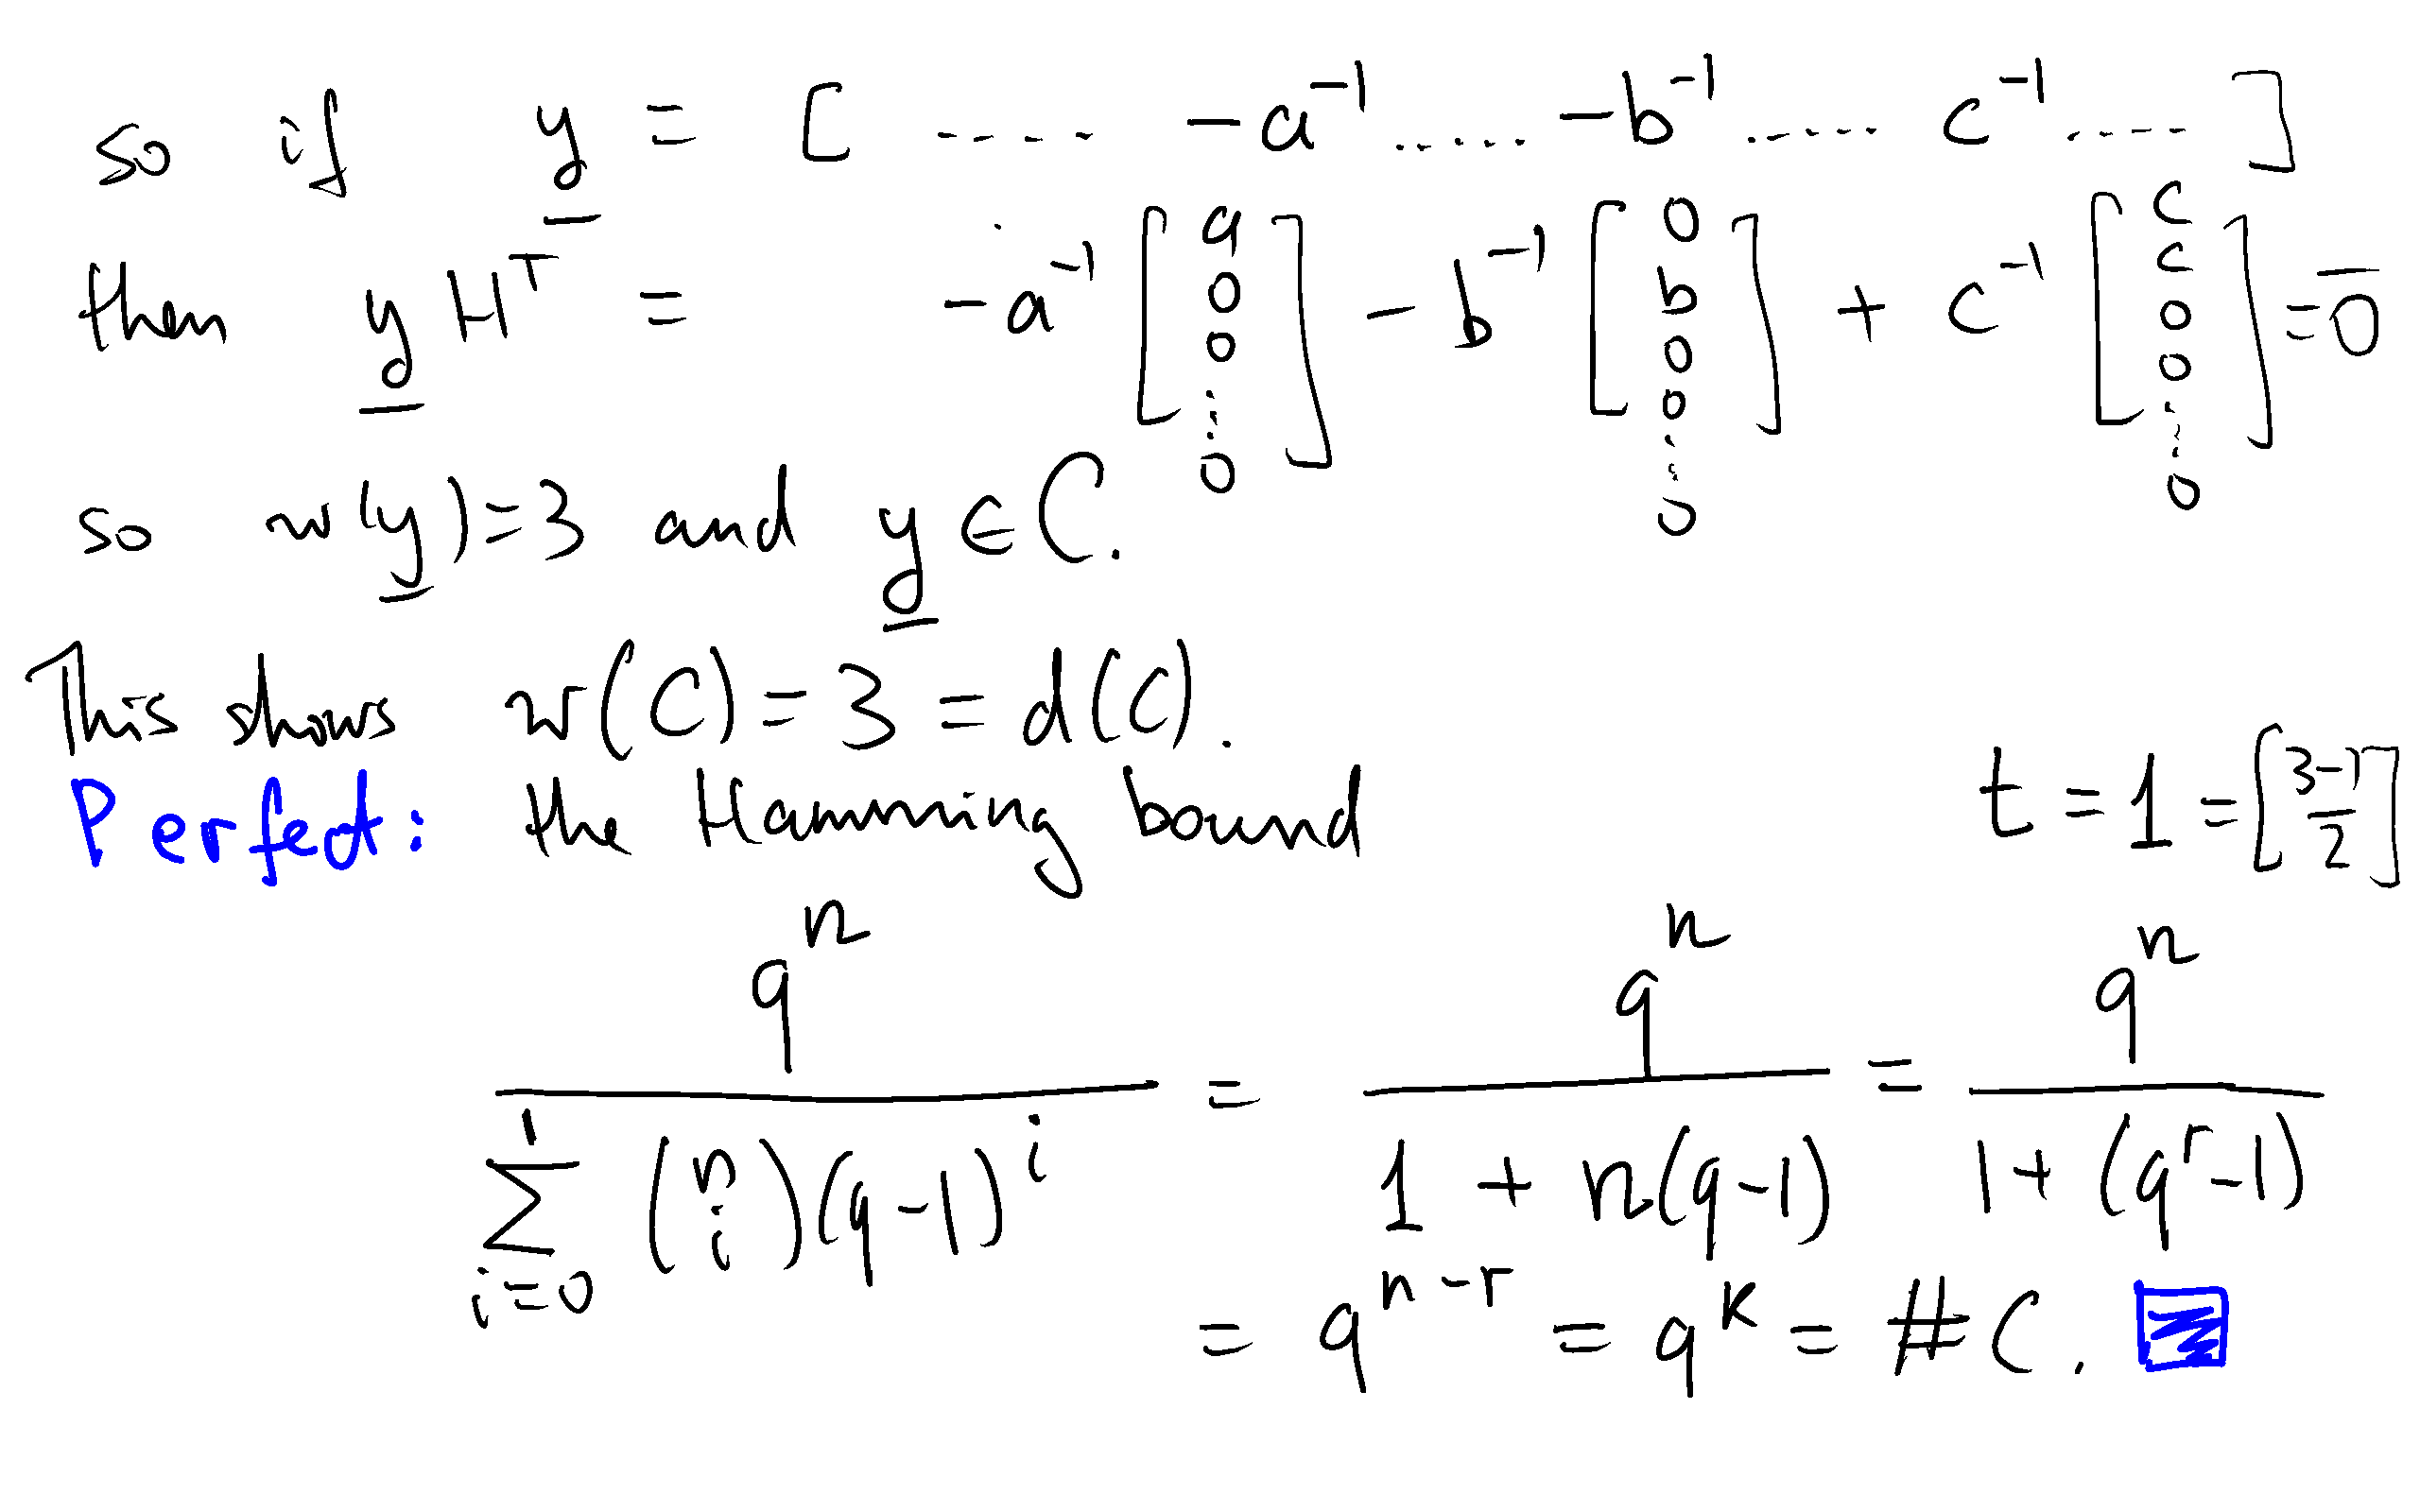 so if y = [ ..... -a⁻¹ ..... -b⁻¹ ..... c⁻¹ ..... ]
then y Hᵀ = -a⁻¹ [a 0 0 ⋮ 0] - b⁻¹ [0 b 0 0 ⋮ 0] + c⁻¹ [c c 0 0 ⋮ 0] = 0̅
so w(y)=3 and y ∈ C.
This shows w(C) = 3 = d(C).
Perfect: the Hamming bound t = 1 = [(3-1)/2]
qⁿ / ∑_{i=0}^{1} (n i)(q-1)^i = qⁿ / (1 + n(q-1)) = qⁿ / (1 + (q^r - 1))
= q^{n-r} = q^k = #C.